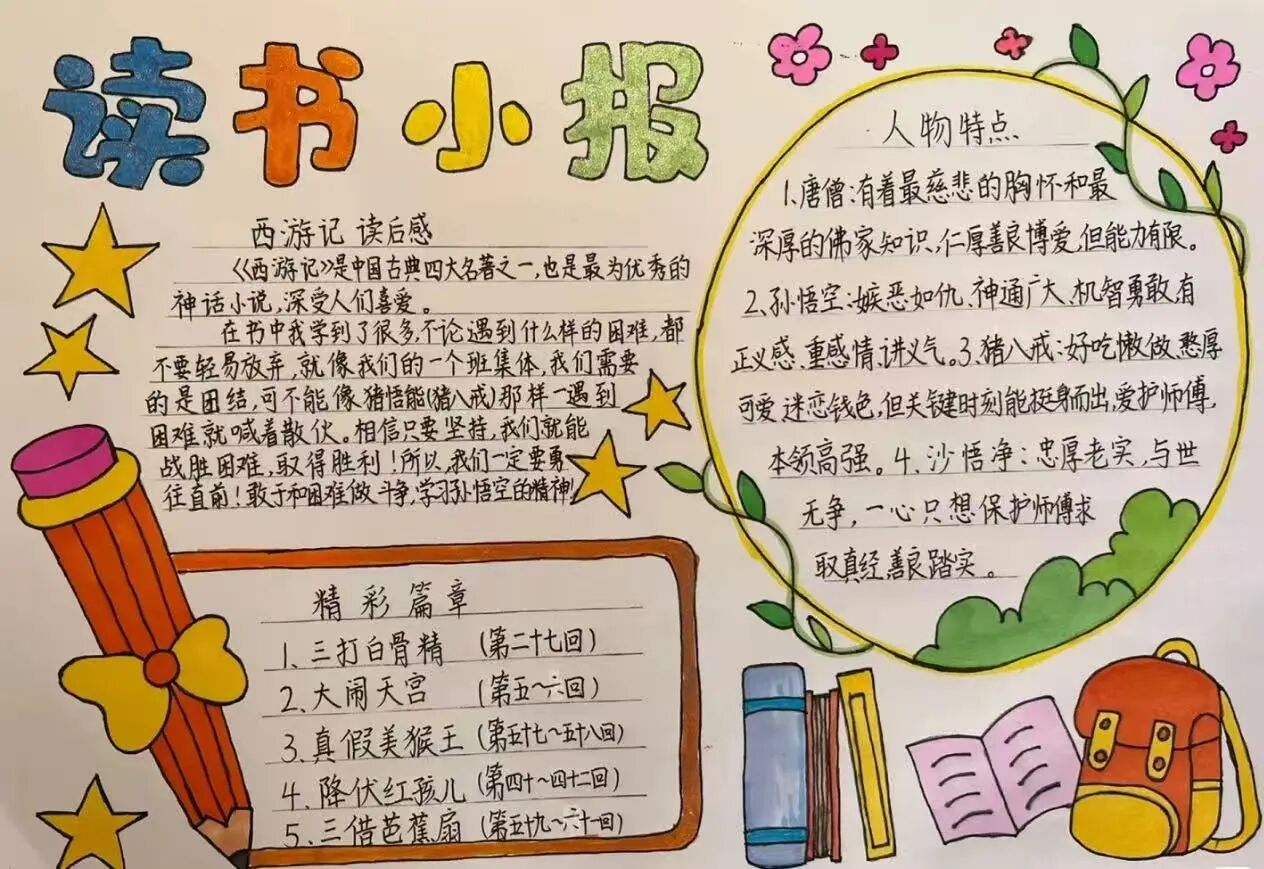 读书小报
西游记 读后感
《西游记》是中国古典四大名著之一,也是最为优秀的
神话小说,深受人们喜爱。
在书中我学到了很多,不论遇到什么样的困难,都
不要轻易放弃,就像我们的一个班集体,我们需要
的是团结,可不能像猪悟能(猪八戒)那样一遇到
困难就喊着散伙。相信只要坚持,我们就能
战胜困难,取得胜利!所以,我们一定要勇
往直前!敢于和困难做斗争,学习孙悟空的精神!
精彩篇章
1、三打白骨精 (第二十七回)
2、大闹天宫 (第五~六回)
3、真假美猴王 (第五十七~五十八回)
4、降伏红孩儿 (第四十~四十二回)
5、三借芭蕉扇 (第五十九~六十一回)
人物特点
1、唐僧:有着最慈悲的胸怀和最
深厚的佛家知识,仁厚善良博爱,但能力有限。
2、孙悟空:嫉恶如仇、神通广大、机智勇敢,有
正义感、重感情、讲义气。3、猪八戒:好吃懒做、憨厚
可爱、迷恋钱色,但关键时刻能挺身而出,爱护师傅,
本领高强。4、沙悟净:忠厚老实,与世
无争,一心只想保护师傅求
取真经善良踏实。